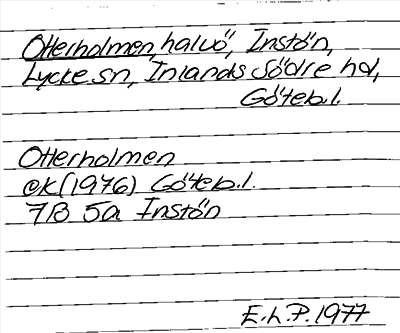 Otterholmen, halvö, Instön,
Lycke sn, Inlands Södre hd,
Göteb.l.
Otterholmen
ek (1976) Göteb.l.
7B 5a Instön
E.L.P. 1977